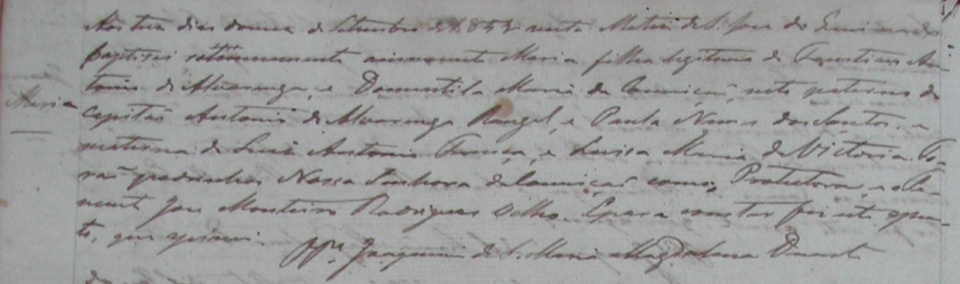 Aos tres dias do mes de Setembro de 1852 nesta Matriz de S. Jose do
baptisei solemnemente a innocente Maria filha legitima de Faustino An-
Maria
tonio de Alvarenga, e Domentila Maria da Conceição, neta paterna do
Capitão Antonio de Alvarenga Rangel, e Paula Nunes dos Santos, e
materna de Luis Antonio França, e Luisa Maria da Victoria. Fo-
rão padrinhos Nossa Senhora da Conceição como Protectora, e o Te-
nente Jose Monteiro Rodrigues Velho. E para constar fiz este
to, que assignei.
Joaquim de S. Maria Magdalena Duarte